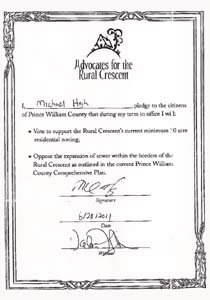 Advocates for the
Rural Crescent
I, Michael High, pledge to the citizens
of Prince William County that during my term in office I will:
• Vote to support the Rural Crescent's current minimum 10 acre
residential zoning;
• Oppose the expansion of sewer within the borders of the
Rural Crescent as outlined in the current Prince William
County Comprehensive Plan.
Signature
6/28/2011
Date
Witness